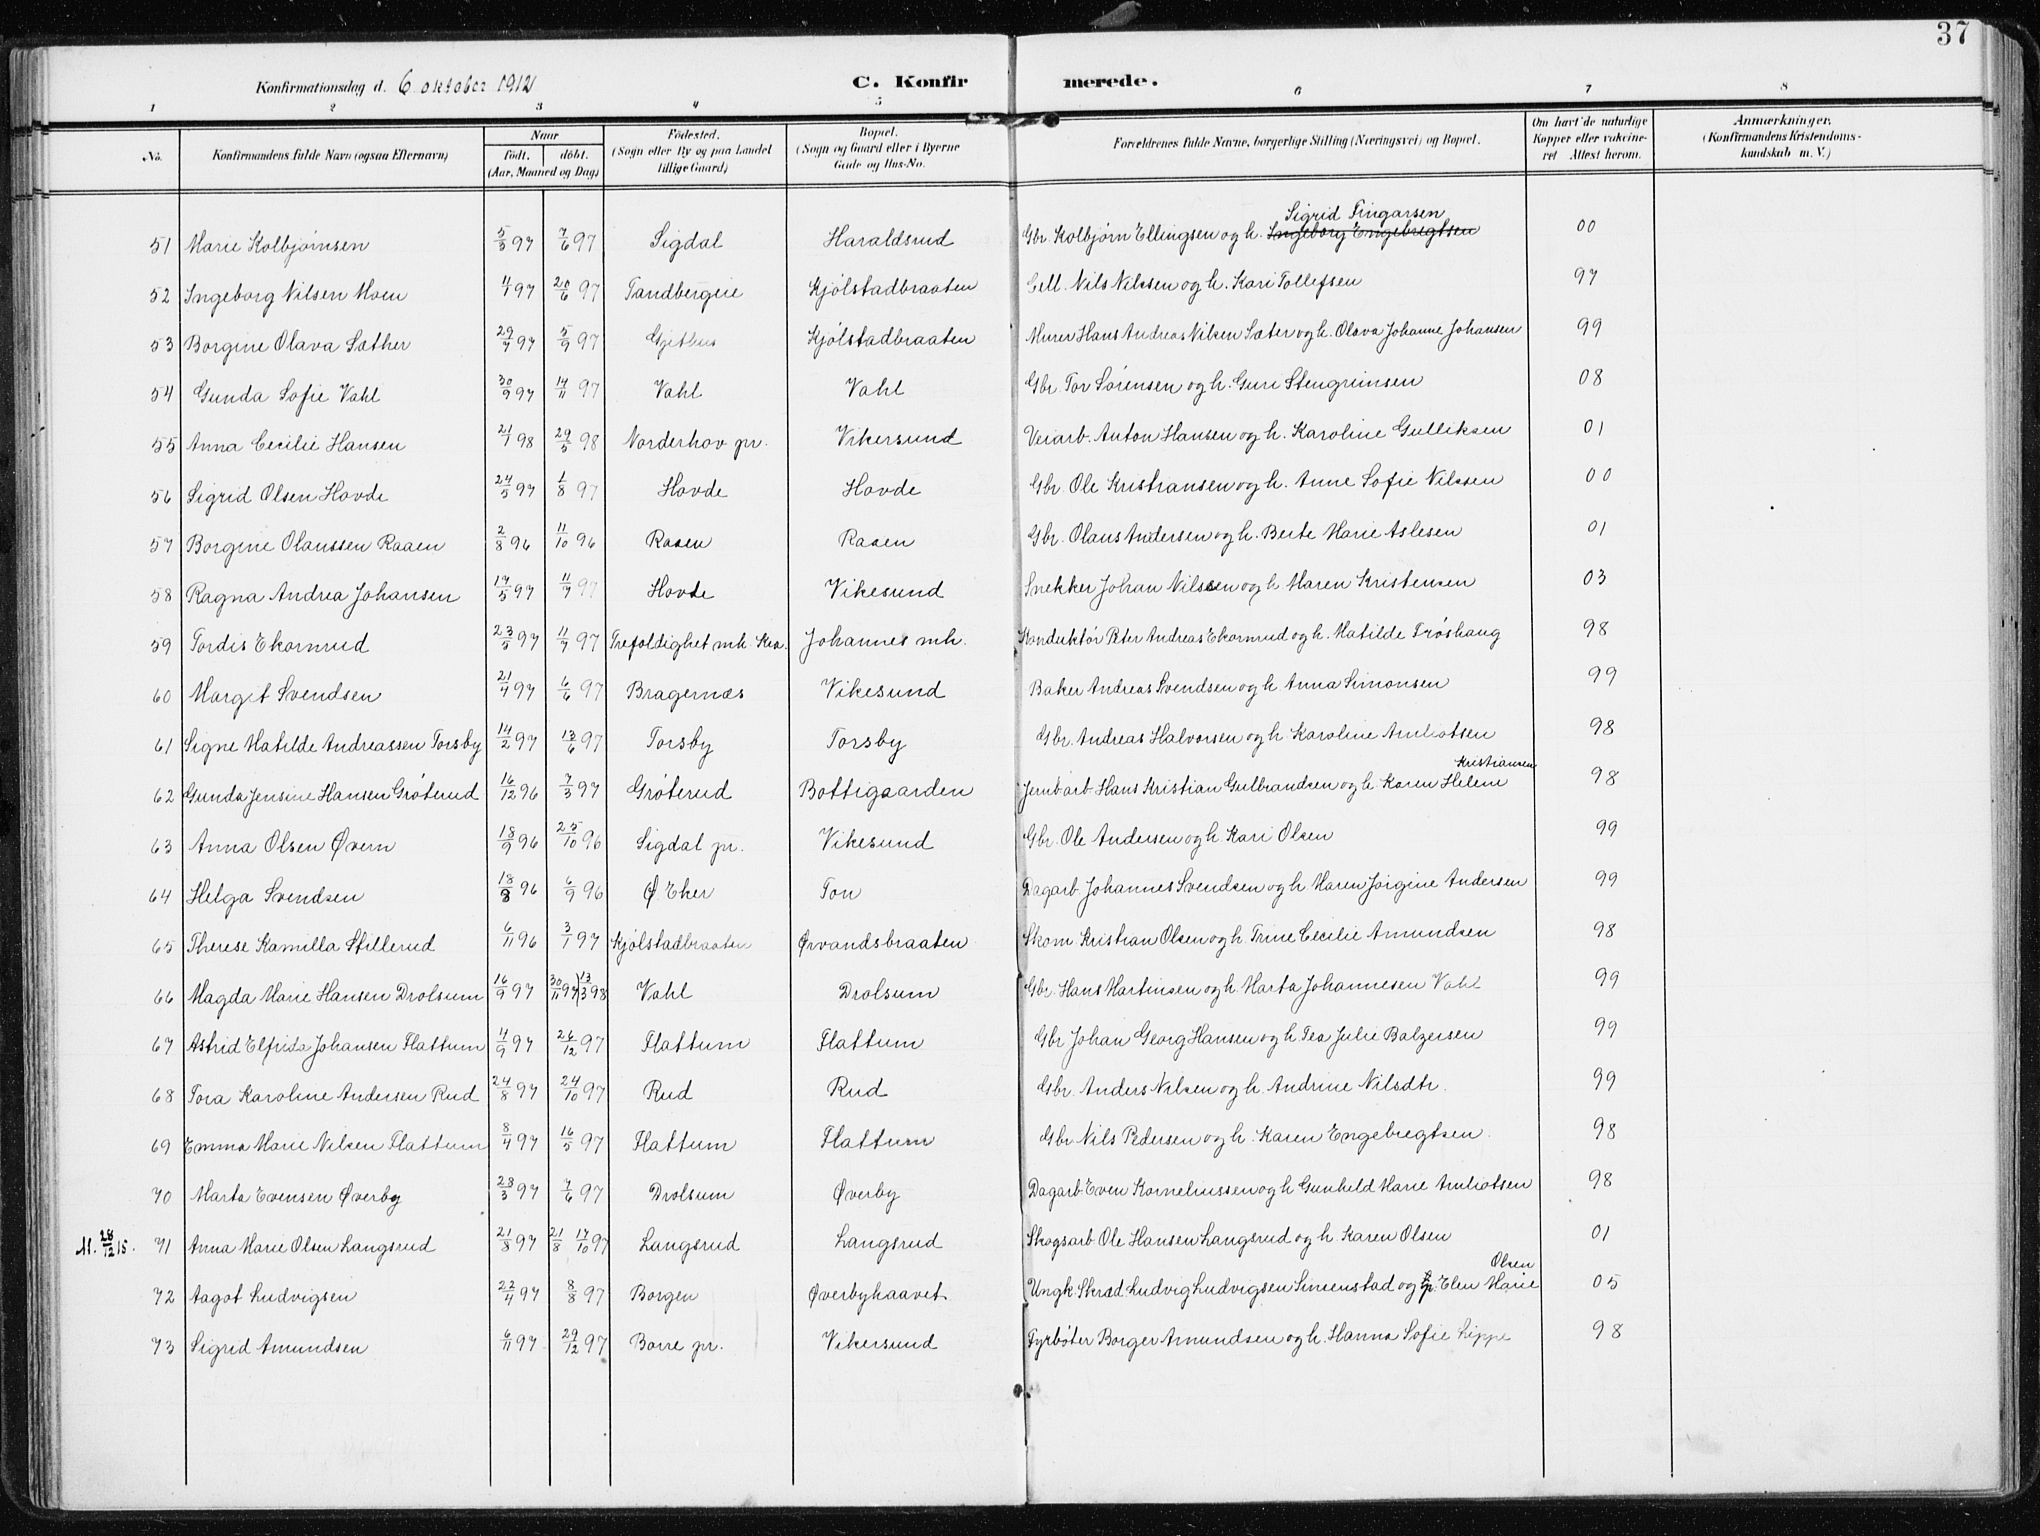 37
Konfirmationsdag d. 6 oktober 1912 C. Konfirmerede.
1 2 3 4 5 6 7 8
No. Konfirmandens fulde Navn (ogsaa Efternavn) Naar födt. döbt. (Aar, Maaned og Dag) Födested. (Sogn eller By og paa Landet tillige Gaard) Bopæl. (Sogn og Gaard eller i Byerne Gade og Hus-No. Forældrenes fulde Navne, borgerlige Stilling (Næringsvei) og Bopæl. Om havt de naturlige Kopper eller vakcineret Attest herom. Anmærkninger. (Konfirmandens Kristendomskundskab m. V.)
Sigrid Fingarsen
51 Marie Kolbjørnsen 5/3 97 7/6 97 Sigdal Haraldsud Gbr. Kolbjørn Ellingsen og h. Ingeborg Engebregtsen 00
52 Ingeborg Nilsen Moen 97 20/6 97 Tandbergeie Kjølstadbraaten Cell. Nils Nilssen og h. Kari Tollefsen 97
53 Borgine Olava Sæther 29/7 97 5/9 97 Gjethus Kjølstadbraaten Murer Hans Andreas Nilsen Sæter og h. Olava Johanne Johansen 99
54 Gunda Sofie Vahl 30/9 97 14/11 97 Vahl Vahl Gbr. Tor Sørensen og h. Guri Stengrimsen 08
55 Anna Cecilie Hansen 21/1 98 29/5 98 Norderhov pr. Vikersund Veiarb. Anton Hansen og h. Karoline Gulliksen 01
56 Sigrid Olsen Hovde 24/5 97 1/8 97 Hovde Hovde Gbr Ole Kristiansen og h. Anne Sofie Nilssen 00
57 Borgine Olaussen Raaen 2/8 96 11/10 96 Raaen Raaen Gbr. Olaus Andersen og h. Berte Marie Aslesen 01
58 Ragna Andrea Johansen 17/5 97 11/7 97 Hovde Vikesund Snekker Johan Nilssen og h Maren Kristensen 03
59 Tordis Ekornrud 23/5 97 11/7 97 Trefoldighet mh. Kra. Johannes mh. Konduktør Peter Andreas Ekornrud og h. Matilde Frøshaug 98
60 Margit Svendsen 21/4 97 6/6 97 Bragernæs Vikesund Baker Andreas Svendsen og h Anna Simonsen 99
61 Signe Matilde Andreassen Torsby 14/2 97 13/6 97 Torsby Torsby Gbr. Andreas Halvorsen og h Karoline Amliotsen 98
Kristiansen
62 Gunda Jensine Hansen Grøterud 16/12 96 7/3 97 Grøterud Bottigaarden Jernb arb Hans Kristian Gulbrandsen og h Karen Helene 98
63 Anna Olsen Øvern 18/9 96 25/10 96 Sigdal pr. Vikesund Gbr. Ole Andersen og h. Kari Olsen 99
64 Helga Svendsen 18/8 96 6/9 96 Ø Eker Ton Dagarb. Johannes Svendsen og h Maren Jørgine Andersen 99
65 Therese Kamilla Stillerud 6/11 96 3/1 97 Kjølstadbraaten Ørvandsbraaten Skom. Kristian Olsen og h. Trine Cecilie Amundsen 98
66 Magda Marie Hansen Drolsum 16/9 97 30/11 97 13/3 98 Vahl Drolsum Gbr. Hans Martinsen og h. Marta Johannesen Vahl 99
67 Astrid Elfrida Johansen Flattum 11/9 97 26/12 97 Flattum Flattum Gbr Johan Georg Hansen og h Tea Julie Balzersen 99
68 Tora Karoline Andersen Rud 24/8 97 24/10 97 Rud Rud Gbr. Anders Nilsen og h. Andrine Nilsdtr. 99
69 Emma Marie Nilsen Flattum 8/4 97 16/5 97 Flattum Flattum Gbr Nils Pedersen og h. Karen Engebregtsen. 98
70 Marta Evensen Øverby 28/3 97 7/6 97 Drolsum Øverby Dagarb Even Korneliussen og h Gunhild Marie Amliotsen 98
28/12 15. 71 Anna Marie Olsen Langsrud 21/8 97 21/8 17/10 97 Langsrud Langsrud Skogsarb Ole Hansen Langsrud og h Karen Olsen 01
Olsen
72 Aagot Ludvigsen 22/4 97 8/8 97 Borgen Øverbyhaavet Ungk. Skræd Ludvig Ludvigsen Simenstad og p. Elen Marie 05
73 Sigrid Amundsen 6/11 97 29/12 97 Borre pr. Vikersund Fyrbøter Borger Amundsen og h. Hanna Sofie Lippe 98